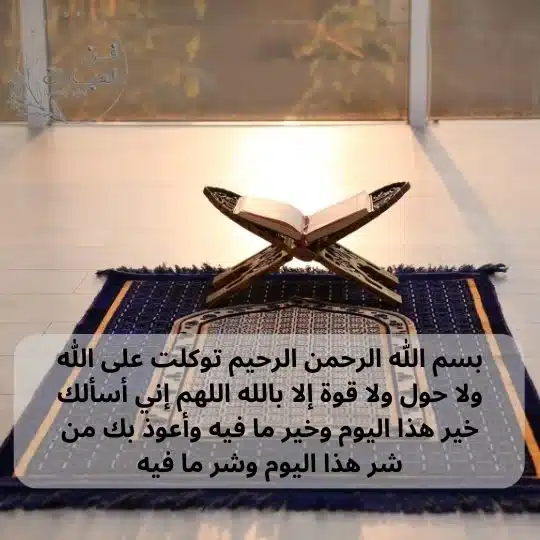 فن
بسم الله الرحمن الرحيم توكلت على الله
ولا حول ولا قوة إلا بالله اللهم إني أسألك
خير هذا اليوم وخير ما فيه وأعوذ بك من
شر هذا اليوم وشر ما فيه